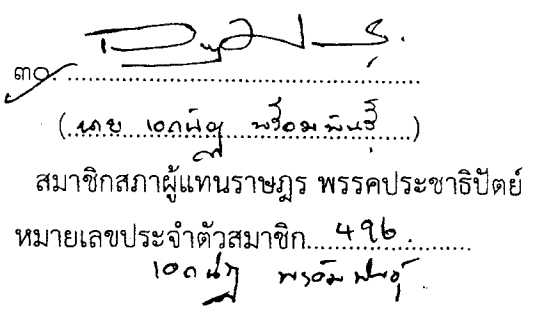 ๓๐.
(นาย เอกนัฏ พร้อมพันธุ์)
สมาชิกสภาผู้แทนราษฎร พรรคประชาธิปัตย์
หมายเลขประจำตัวสมาชิก 496
เอกนัฏ พร้อมพันธุ์